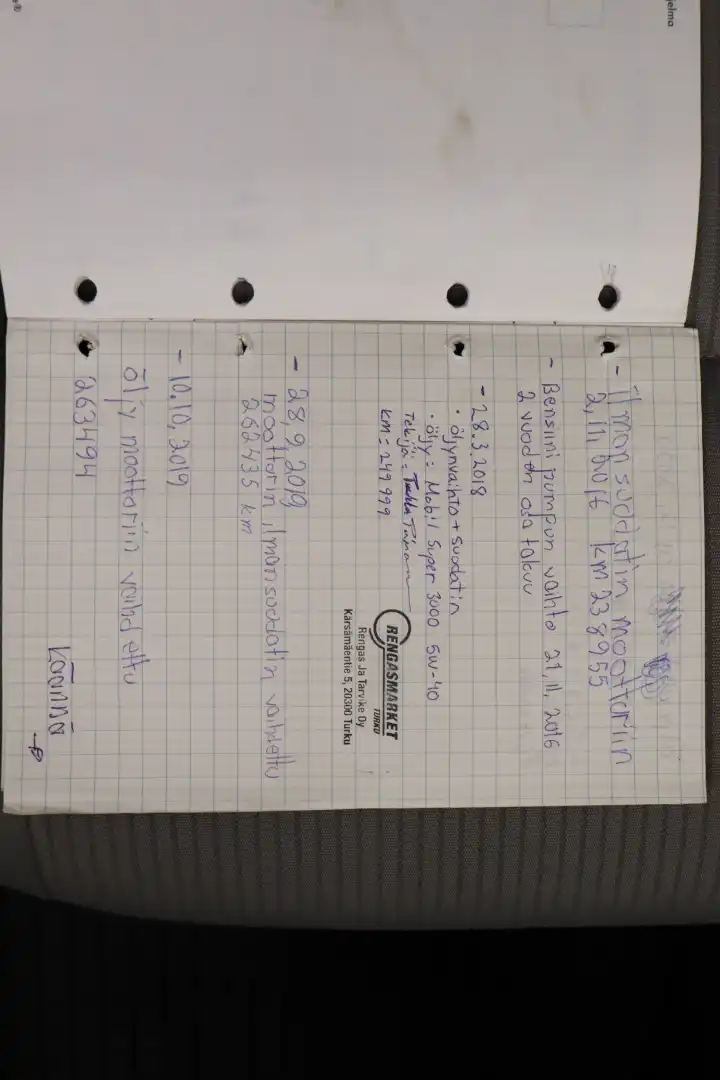 jelma
- Ilman suodatin moottoriin
2,11,2016 km 238955
- Bensiini pumpun vaihto 21,11,2016
2 vuoden osa takuu
- 28.3.2018
• Öljynvaihto + suodatin
• Öljy: Mobil Super 3000 5W-40
Tekijä:
km: 249 999
RENGASMARKET
TURKU
Rengas Ja Tarvike Oy
Kärsämäentie 5, 20300 Turku
- 28,9,2019
moottorin ilmansuodatin vaihdettu
262,435 km
- 10.10,2019
Öljy moottoriin vaihdettu
263494
Käännä